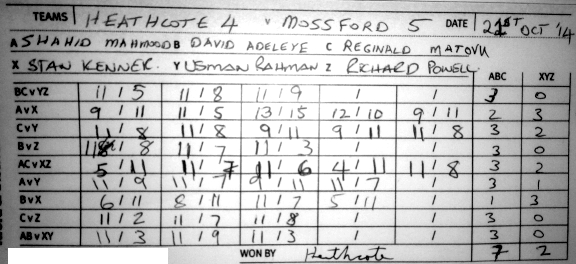 TEAMS HEATHCOTE 4 v MOSSFORD 5 DATE 21ST OCT '14
A SHAHID MAHMOOD B DAVID ADELEYE C REGINALD MATOVU
X STAN KENNER. Y USMAN RAHMAN Z RICHARD POWELL
ABC XYZ
BC v YZ 11 / 5 11 / 8 11 / 9 / / 3 0
A v X 9 / 11 11 / 5 13 / 15 12 / 10 9 / 11 2 3
C v Y 11 / 8 11 / 8 9 / 11 9 / 11 11 / 8 3 2
B v Z 11 / 8 11 / 7 11 / 3 / / 3 0
AC v XZ 5 / 11 11 / 7 11 / 6 4 / 11 11 / 8 3 2
A v Y 11 / 9 11 / 7 9 / 11 11 / 7 / 3 1
B v X 6 / 11 8 / 11 11 / 7 5 / 11 / 1 3
C v Z 11 / 2 11 / 7 11 / 8 / / 3 0
AB v XY 11 / 3 11 / 9 11 / 3 / / 3 0
WON BY Heathcote 7 2